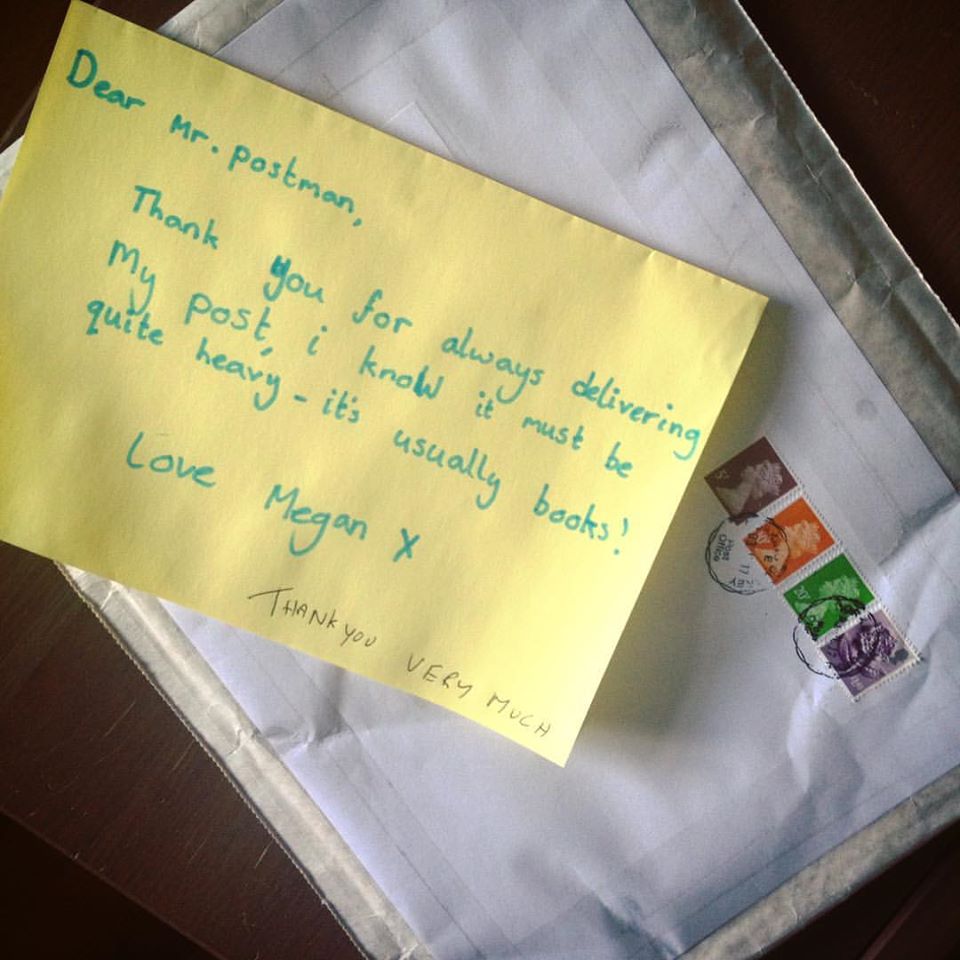 Dear Mr. postman,
Thank you for always delivering
My post, i know it must be
quite heavy - it's usually books!
Love Megan x
THANK YOU VERY MUCH
Post
Office